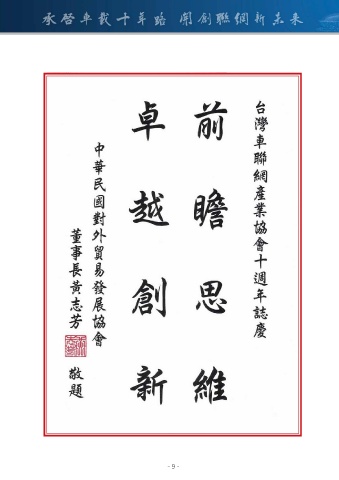 承啓車載十年路 開創聯網新未來
台灣車聯網產業協會十週年誌慶
前瞻思維
卓越創新
中華民國對外貿易發展協會
董事長黃志芳
敬題
- 9 -